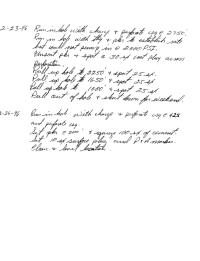 2-23-96 Run in hole with charge & perforate csg @ 2750.
Run in hole with tbg & pkr to establish rate
but could not pump in @ 2000 PSI.
Unseat pkr & spot a 30 sx cmt plug across
perforation.
Pull up hole to 2250 & spot 25 sx.
Pull up hole to 1650 & spot 25 sx.
Pull up hole to 1000 & spot 25 sx.
Pull out of hole & shut down for weekend.
2-26-96 Run in hole with charge & perforate csg @ 425
and perforate csg.
Set pkr @ & squeeze 100 sx of cement.
Set 10 sx surface plug and P&A marker.
Clean & level location.